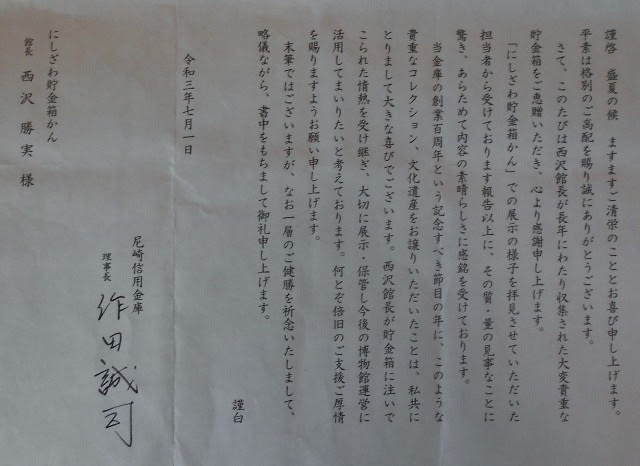 謹啓　盛夏の候　ますますご清栄のこととお喜び申し上げます。
平素は格別のご高配を賜り誠にありがとうございます。
さて、このたびは西沢館長が長年にわたり収集された大変貴重な
貯金箱をご恵贈いただき、心より感謝申し上げます。
「にしざわ貯金箱かん」での展示の様子を拝見させていただいた
担当者から受けております報告以上に、その質・量の見事なことに
驚き、あらためて内容の素晴らしさに感銘を受けております。
当金庫の創業百周年という記念すべき節目の年に、このような
貴重なコレクション、文化遺産をお譲りいただいたことは、私共に
とりまして大きな喜びでございます。西沢館長が貯金箱に注いで
こられた情熱を受け継ぎ、大切に展示・保管し今後の博物館運営に
活用してまいりたいと考えております。何とぞ倍旧のご支援ご厚情
を賜りますようお願い申し上げます。
末筆ではございますが、なお一層のご健勝を祈念いたしまして、
略儀ながら、書中をもちまして御礼申し上げます。
謹白
令和三年七月一日
尼崎信用金庫
理事長　作田誠司
にしざわ貯金箱かん
館長　西沢　勝実　様